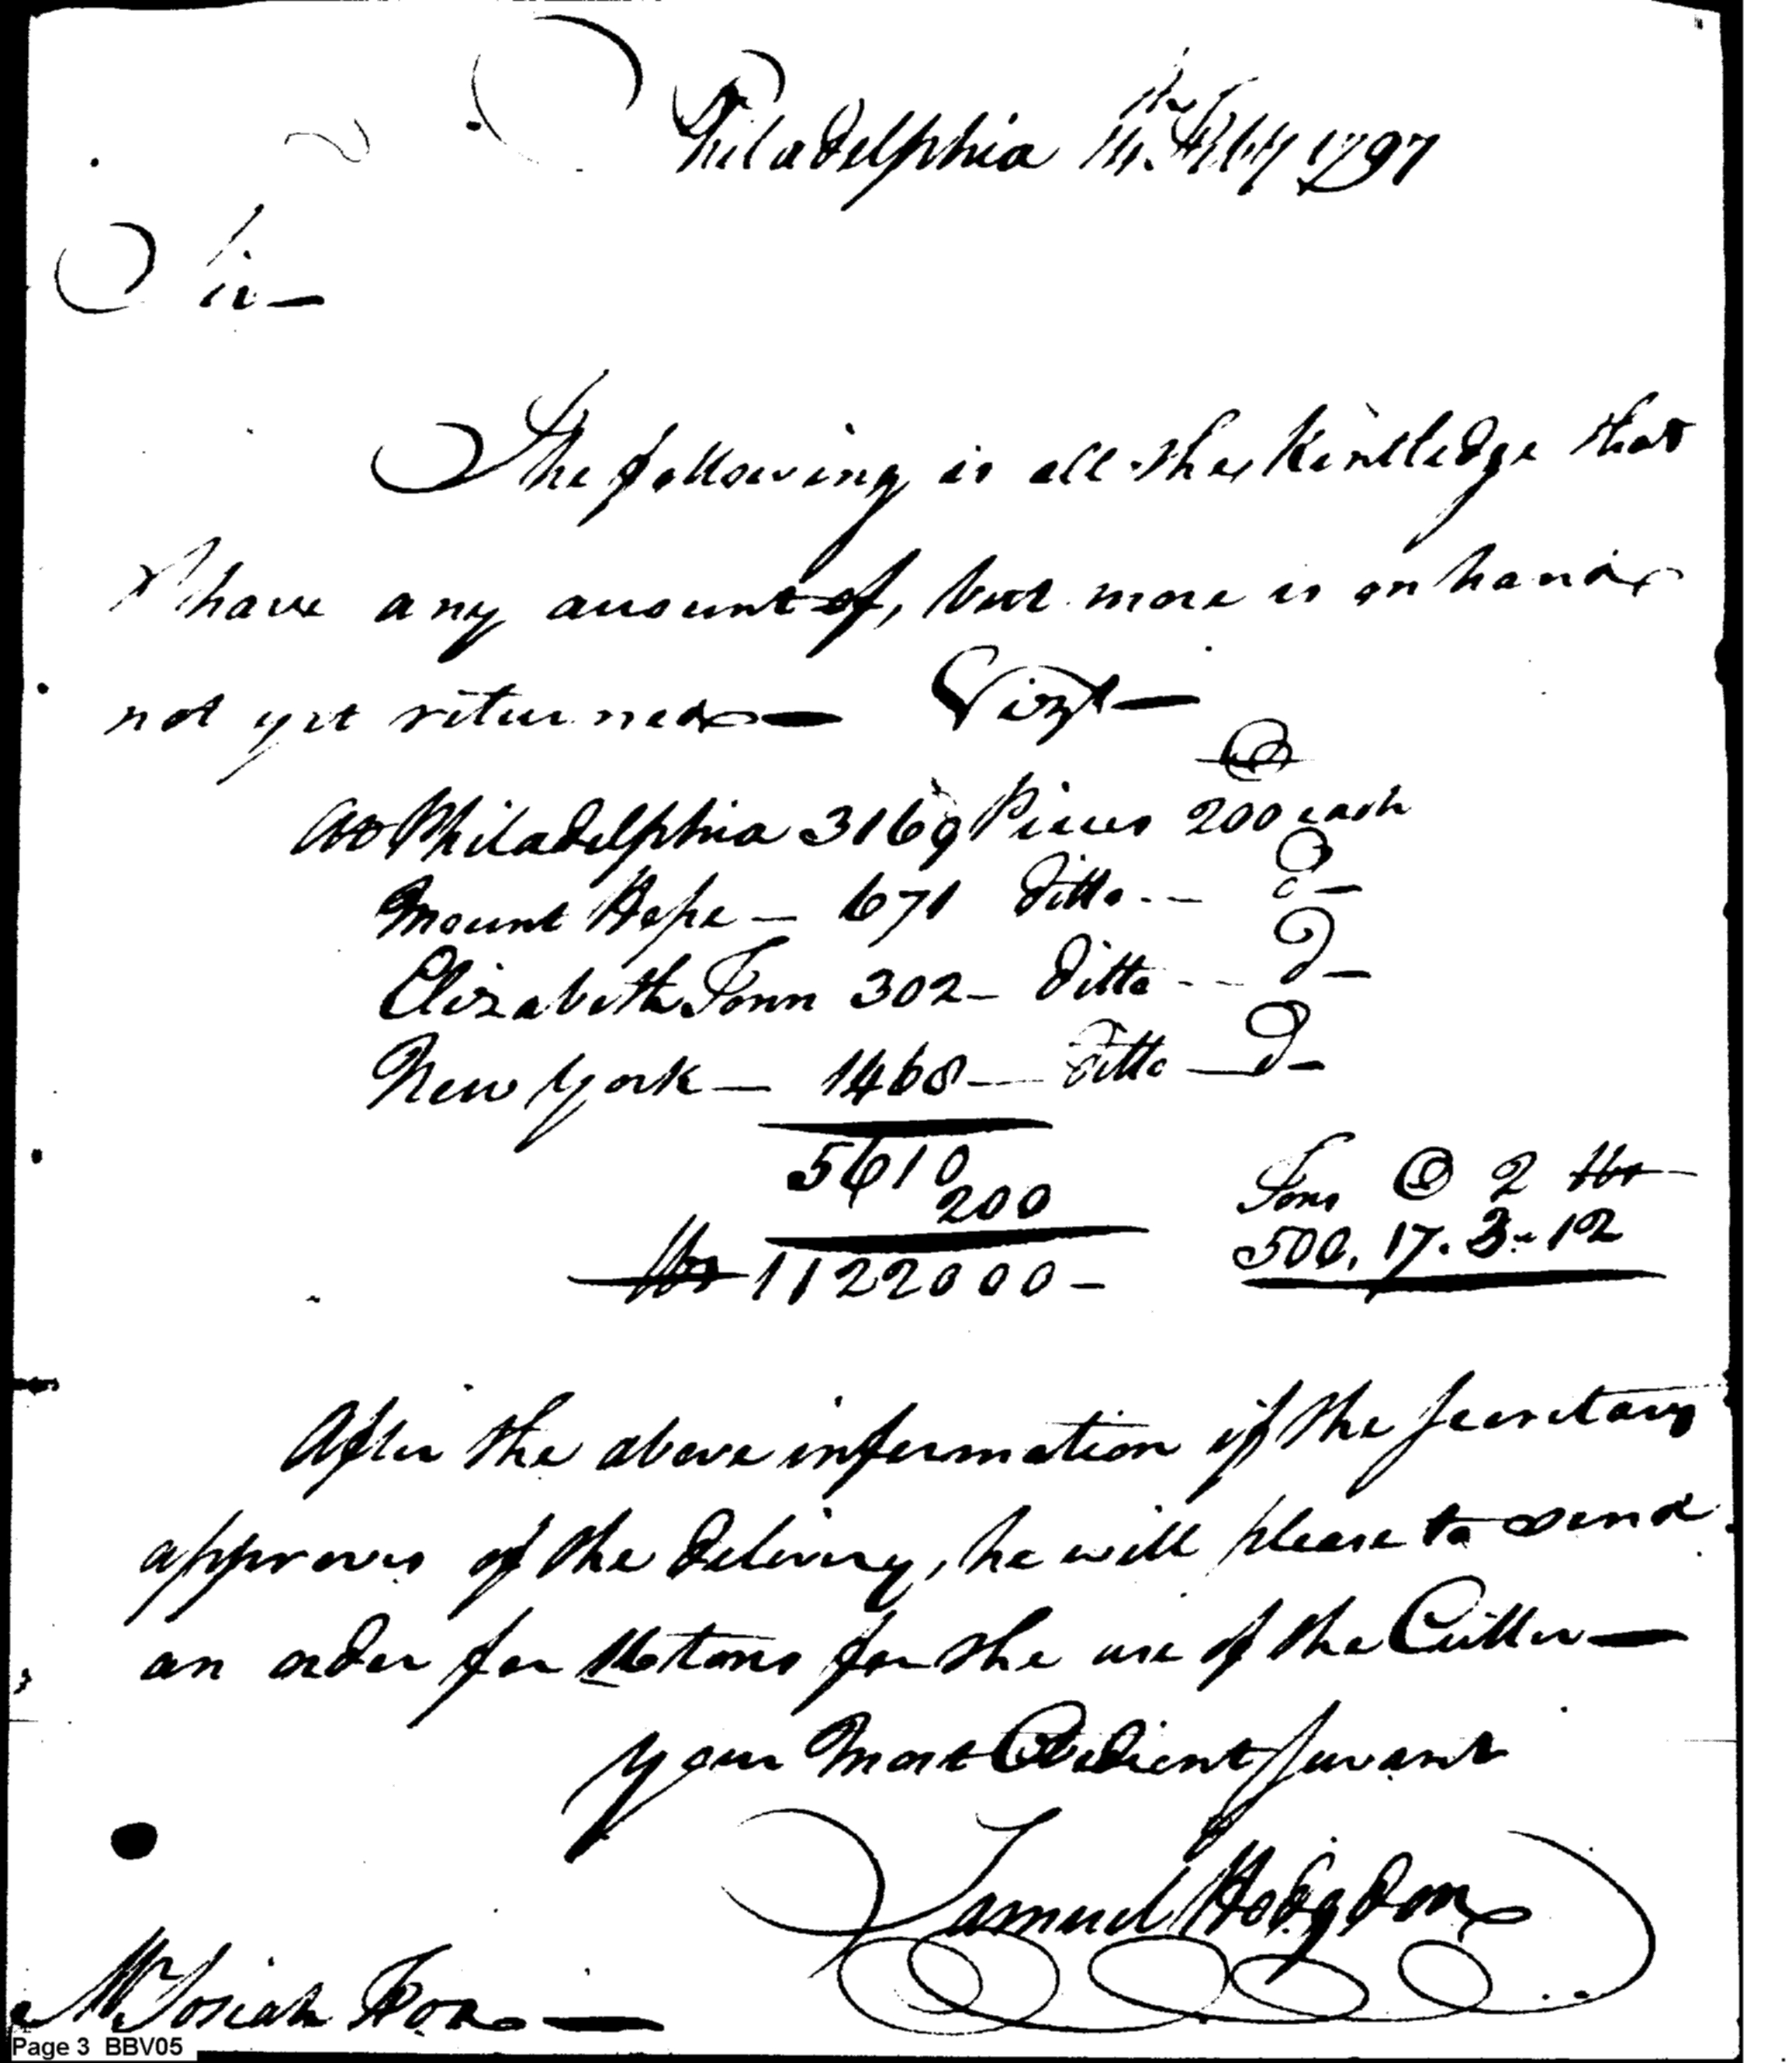 Philadelphia 14th July 1797
Sir—
The following is all the Kentledge that
I have any account of, but more is on hand
not yet returned— Vizt—
@
At Philadelphia 3169 Pieces 200 each
Mount Hope — 671 ditto -- do—
Elizabeth Town 302 — ditto -- do—
New York — 1468 — ditto — do—
5610
200
lbs 1122000—
Tons @ 2 lbs
500. 17. 3. 12
After the above information if the Secretary
approves of the delivery, he will please to send
an order for 16 tons for the use of the Cutter—
Your Most Obedient Servant
Samuel Hodgdon
Mr Josiah Fox—
Page 3 BBV05